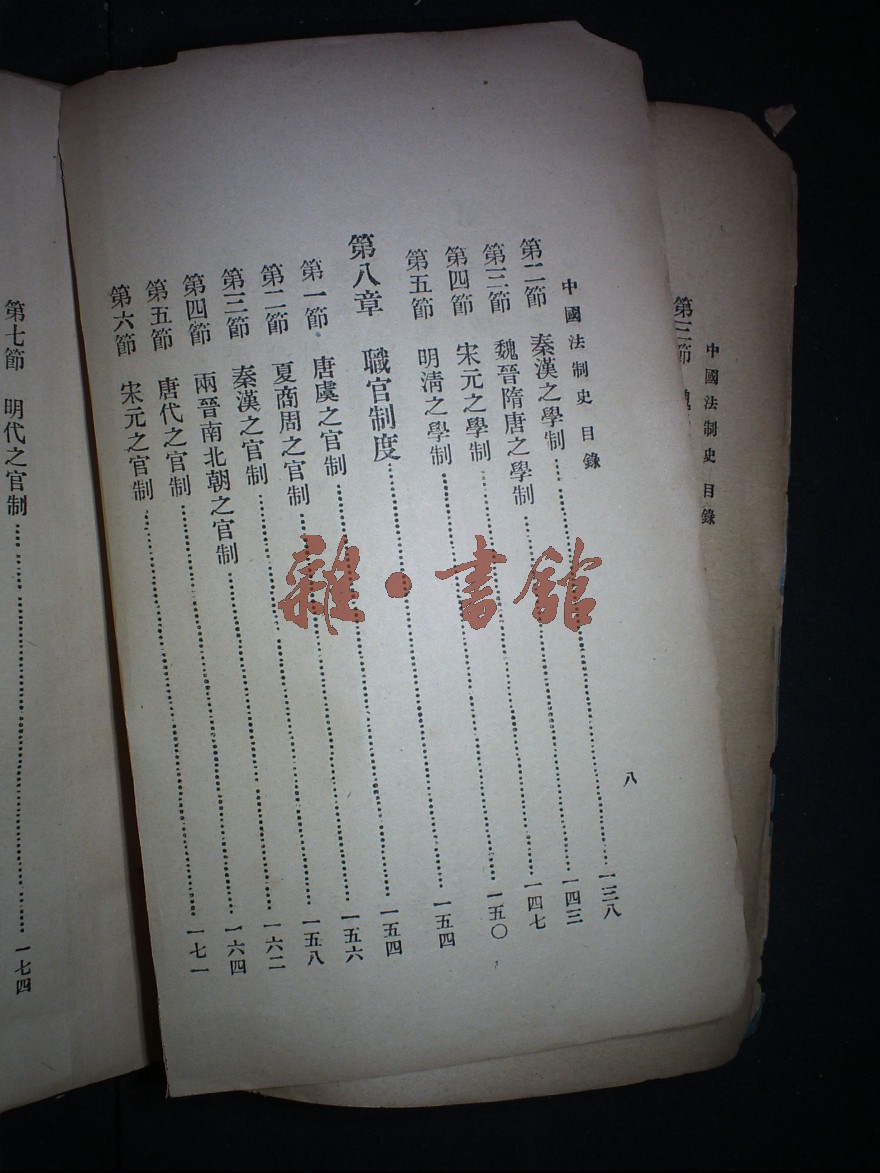 中國法制史 目錄
第三節
中國法制史 目錄 八
第二節 秦漢之學制……一三八
第三節 魏晉隋唐之學制……一四三
第四節 宋元之學制……一四七
第五節 明清之學制……一五〇
第八章 職官制度……一五四
第一節 唐虞之官制……一五四
第二節 夏商周之官制……一五六
第三節 秦漢之官制……一五八
第四節 兩晉南北朝之官制……一六二
第五節 唐代之官制……一六四
第六節 宋元之官制……一七一
第七節 明代之官制……一七四
雜·書館